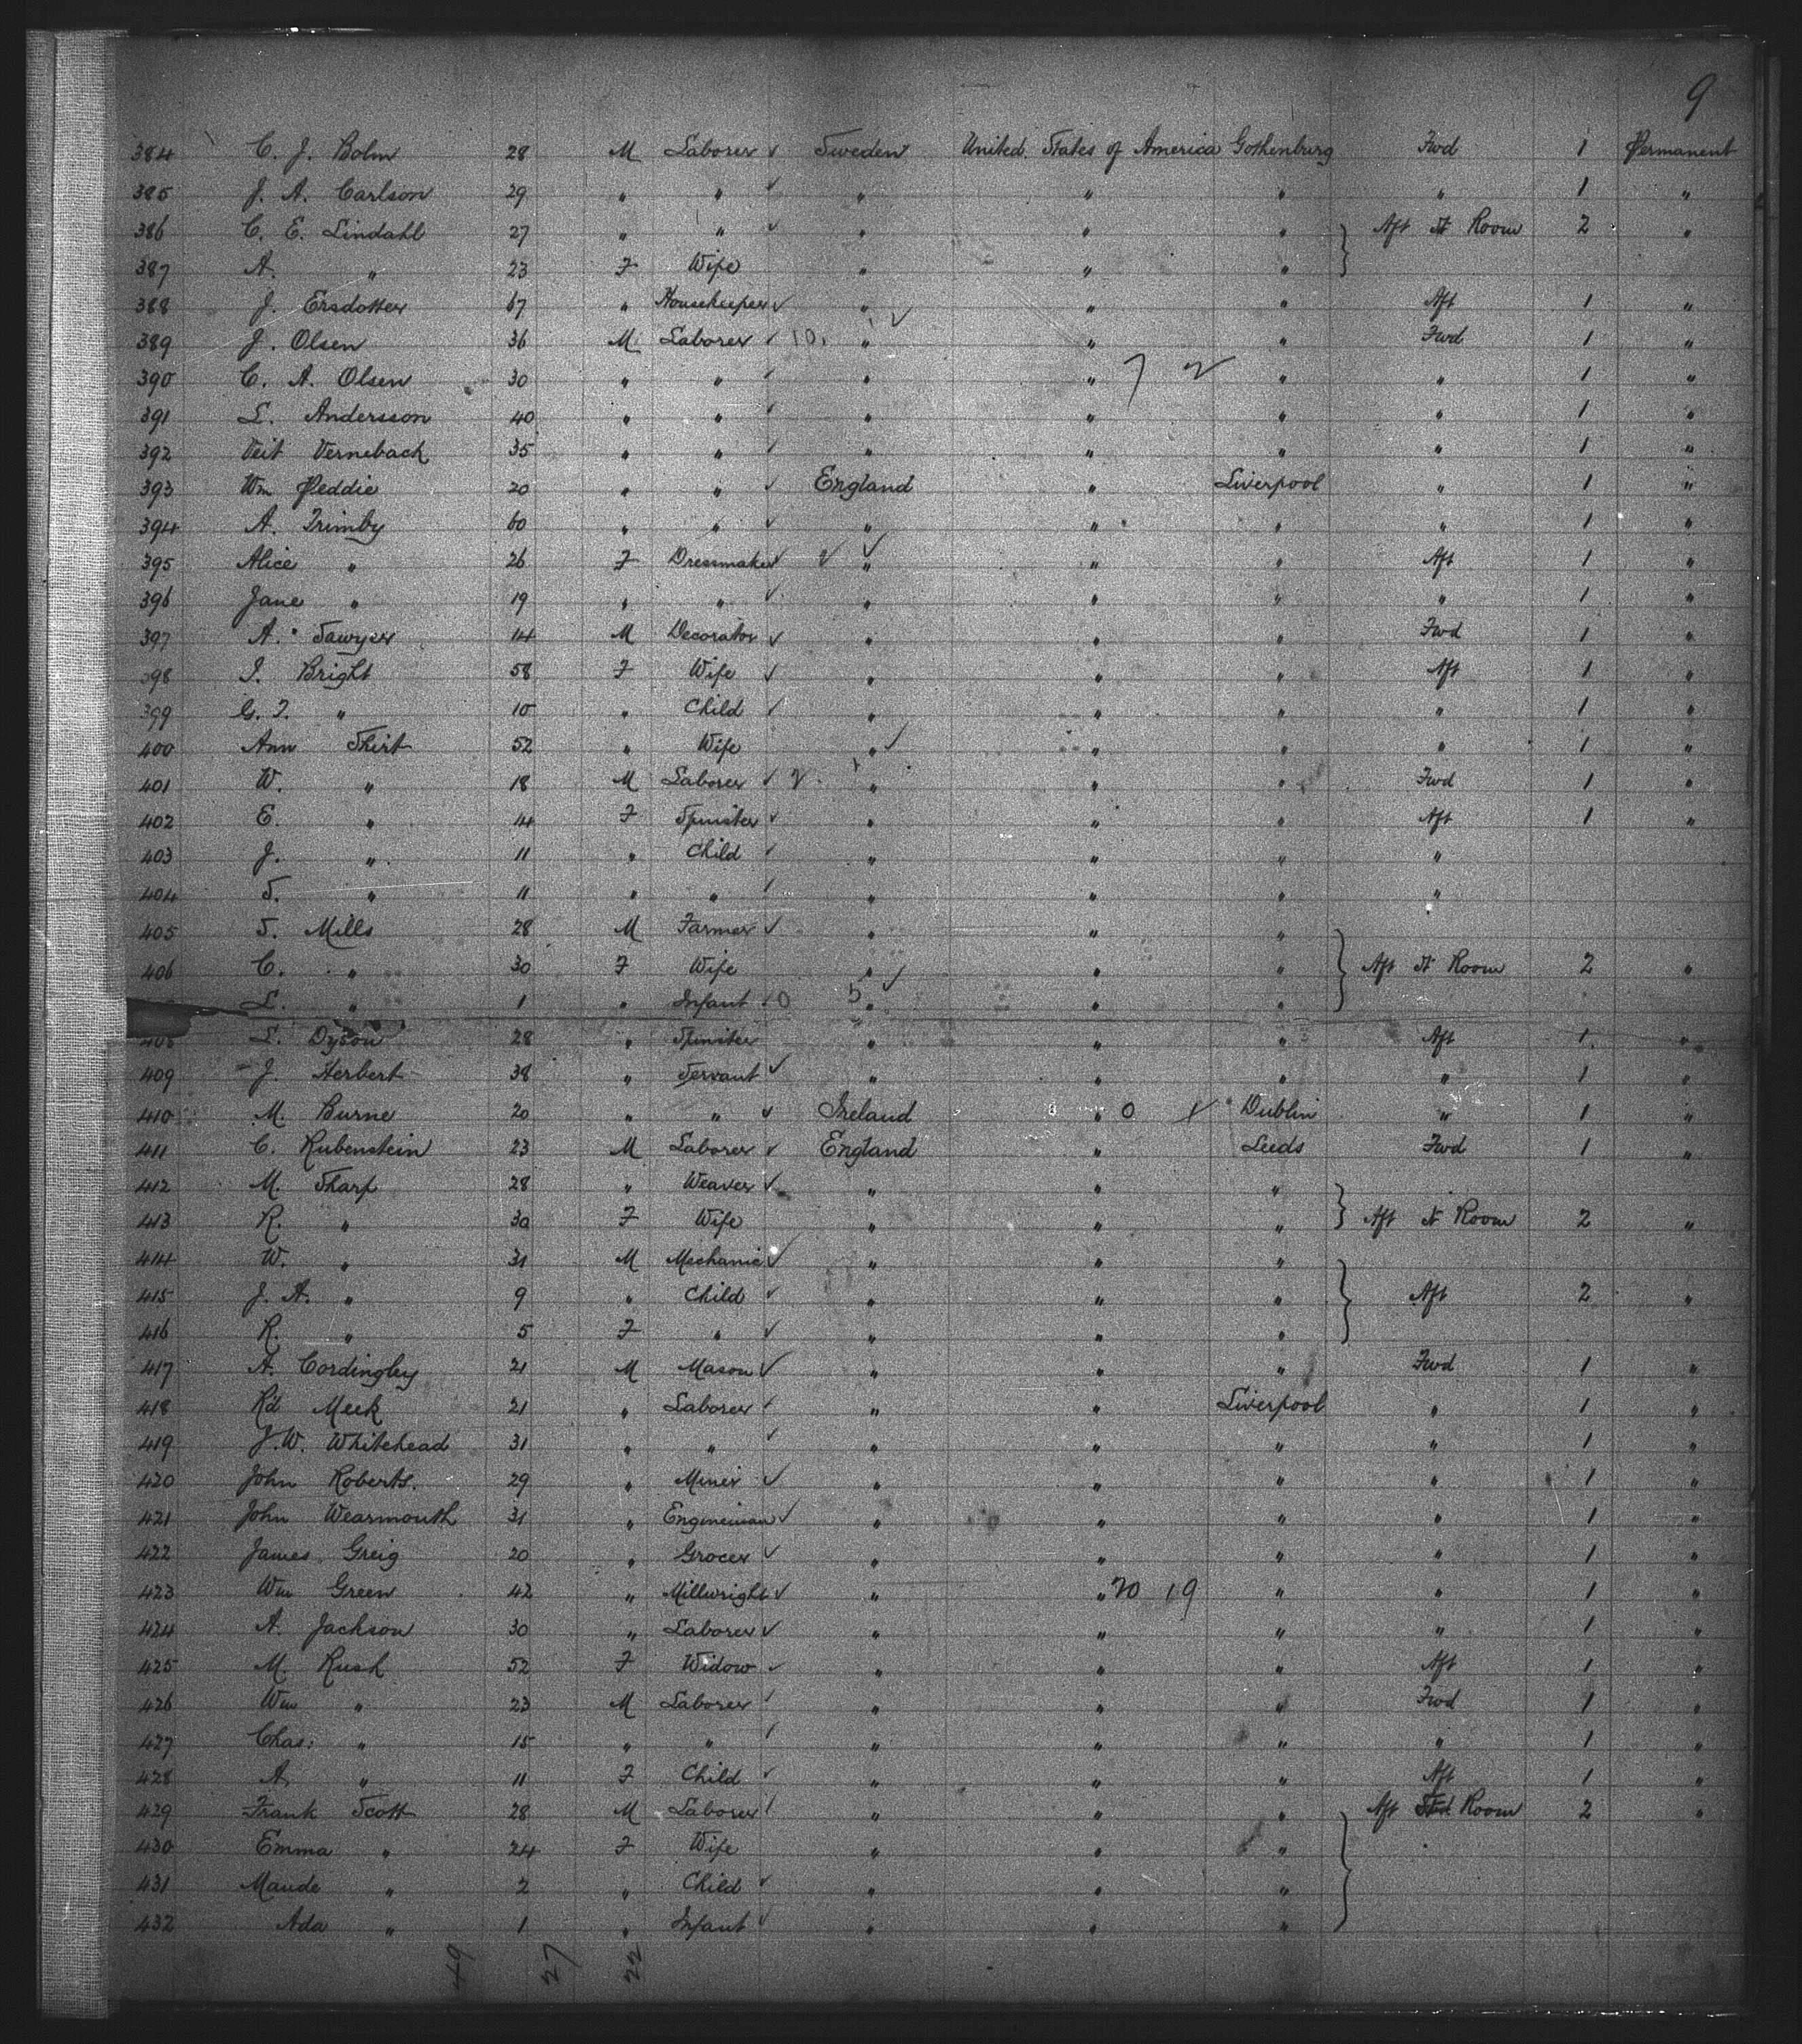 9
384 C. J. Bolm 28 M Laborer ✓ Sweden United States of America Gothenburg Fwd 1 Permanent
385 J. A. Carlson 29 " " ✓ " " " " 1 "
386 C. E. Lindahl 27 " " ✓ " " " Aft St Room 2 "
387 A. " 23 F Wife " " "
388 J. Ersdotter 67 " Housekeeper ✓ " " " Aft 1 "
389 J. Olsen 36 M Laborer ✓ 10 " " " Fwd 1 "
390 C. A. Olsen 30 " " ✓ " " 7 2 " " 1 "
391 L. Andersson 40 " " ✓ " " " " 1 "
392 Veit Verneback 35 " " ✓ " " " " 1 "
393 Wm Peddie 20 " " ✓ England " Liverpool " 1 "
394 A. Trimby 60 " " ✓ " " " " 1 "
395 Alice " 26 F Dressmaker ✓ ✓ " " " Aft 1 "
396 Jane " 19 " " ✓ " " " " 1 "
397 A. Sawyer 14 M Decorator ✓ " " " Fwd 1 "
398 I. Bright 58 F Wife ✓ " " " Aft 1 "
399 G. T. " 10 " Child ✓ " " " " 1 "
400 Ann Shirt 52 " Wife " ✓ " " " 1 "
401 W. " 18 M Laborer ✓ 2 " " " Fwd 1 "
402 E. " 14 F Spinster ✓ " " " Aft 1 "
403 J. " 11 " Child ✓ " " " "
404 S. " 11 " " ✓ " " " "
405 S. Mills 28 M Farmer ✓ " " "
406 C. " 30 F Wife " ✓ " " Aft St Room 2 "
L. " 1 " Infant 0 5 " " "
408 L. Dyson 28 " Spinster " " " Aft 1 "
409 J. Herbert 38 " Servant ✓ " " " " 1 "
410 M. Burne 20 " " ✓ Ireland " 0 1 Dublin " 1 "
411 C. Rubenstein 23 M Laborer ✓ England " Leeds Fwd 1 "
412 M. Sharp 28 " Weaver ✓ " " "
413 R. " 30 F Wife " " " Aft St Room 2 "
414 W. " 31 M Mechanic ✓ " " "
415 J. A. " 9 " Child ✓ " " " Aft 2 "
416 R. " 5 F " ✓ " " "
417 A. Cordingley 21 M Mason ✓ " " " Fwd 1 "
418 Rd Meek 21 " Laborer ✓ " " Liverpool " 1 "
419 J. W. Whitehead 31 " " ✓ " " " " 1 "
420 John Roberts. 29 " Miner ✓ " " " " 1 "
421 John Wearmouth 31 " Engineman ✓ " " " " 1 "
422 James Greig 20 " Grocer ✓ " " " " 1 "
423 Wm Green 42 " Millwright ✓ " " 20 19 " " 1 "
424 A. Jackson 30 " Laborer ✓ " " " " 1 "
425 M. Rush 52 F Widow ✓ " " " Aft 1 "
426 Wm " 23 M Laborer ✓ " " " Fwd 1 "
427 Chas: " 15 " " ✓ " " " " 1 "
428 A. " 11 F Child ✓ " " " Aft 1 "
429 Frank Scott 28 M Laborer ✓ " " " Aft Room 2 "
430 Emma " 24 F Wife " " "
431 Maude " 2 " Child ✓ " " "
432 Ada " 1 " Infant ✓ " " "
49 27 22